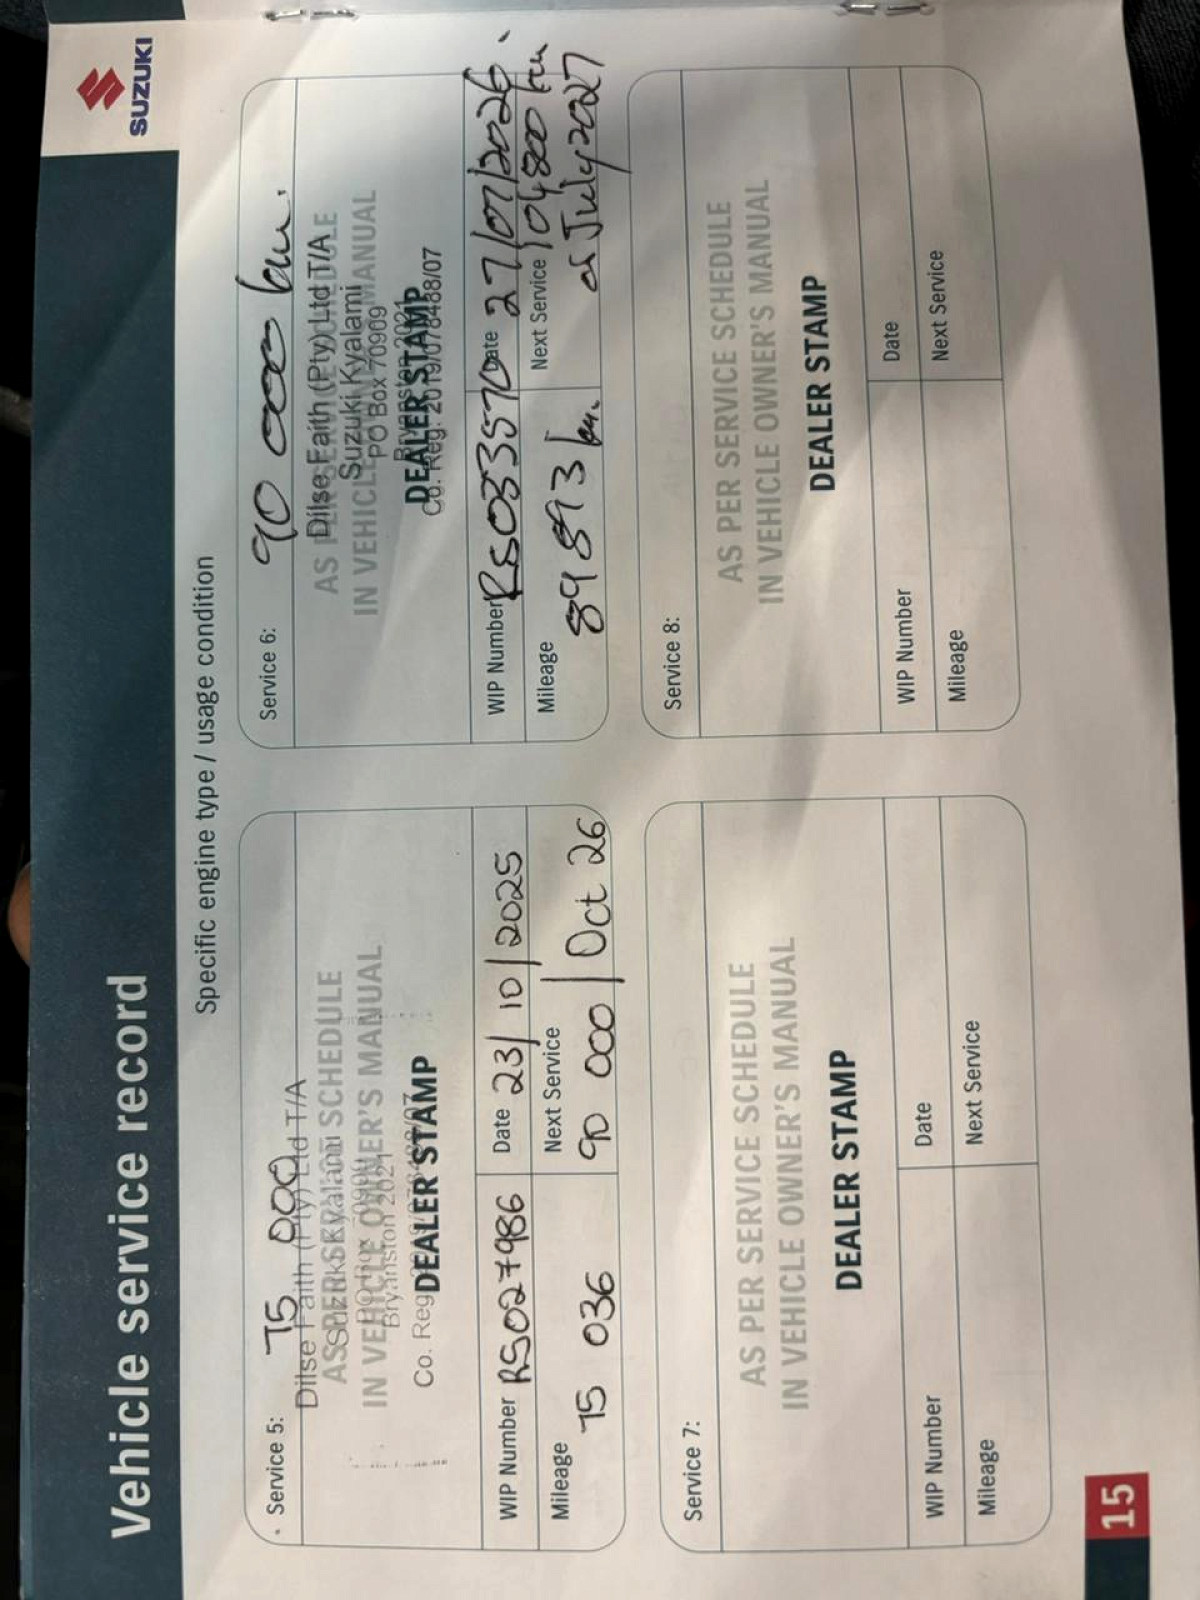 Vehicle service record
SUZUKI
Specific engine type / usage condition
Service 5: 75 000
Dilse Faith (Pty) Ltd T/A
AS PER SERVICE SCHEDULE
Suzuki Kyalami
IN VEHICLE OWNER'S MANUAL
Bryanston 2021
DEALER STAMP
Co. Reg.
WIP Number RS027986
Date 23/10/2025
Mileage 75 036
Next Service 90 000 / Oct 26
Service 6: 90 000 km.
Dilse Faith (Pty) Ltd T/A
AS PER SERVICE SCHEDULE
Suzuki Kyalami
IN VEHICLE OWNER'S MANUAL
PO Box 70909
Bryanston 2021
DEALER STAMP
Co. Reg. 2019/078488/07
WIP Number RS033570
Date 27/07/2026
Mileage 89893 km.
Next Service 104800 km
or July 2027
Service 7:
AS PER SERVICE SCHEDULE
IN VEHICLE OWNER'S MANUAL
DEALER STAMP
WIP Number
Date
Mileage
Next Service
Service 8:
AS PER SERVICE SCHEDULE
IN VEHICLE OWNER'S MANUAL
DEALER STAMP
WIP Number
Date
Mileage
Next Service
15